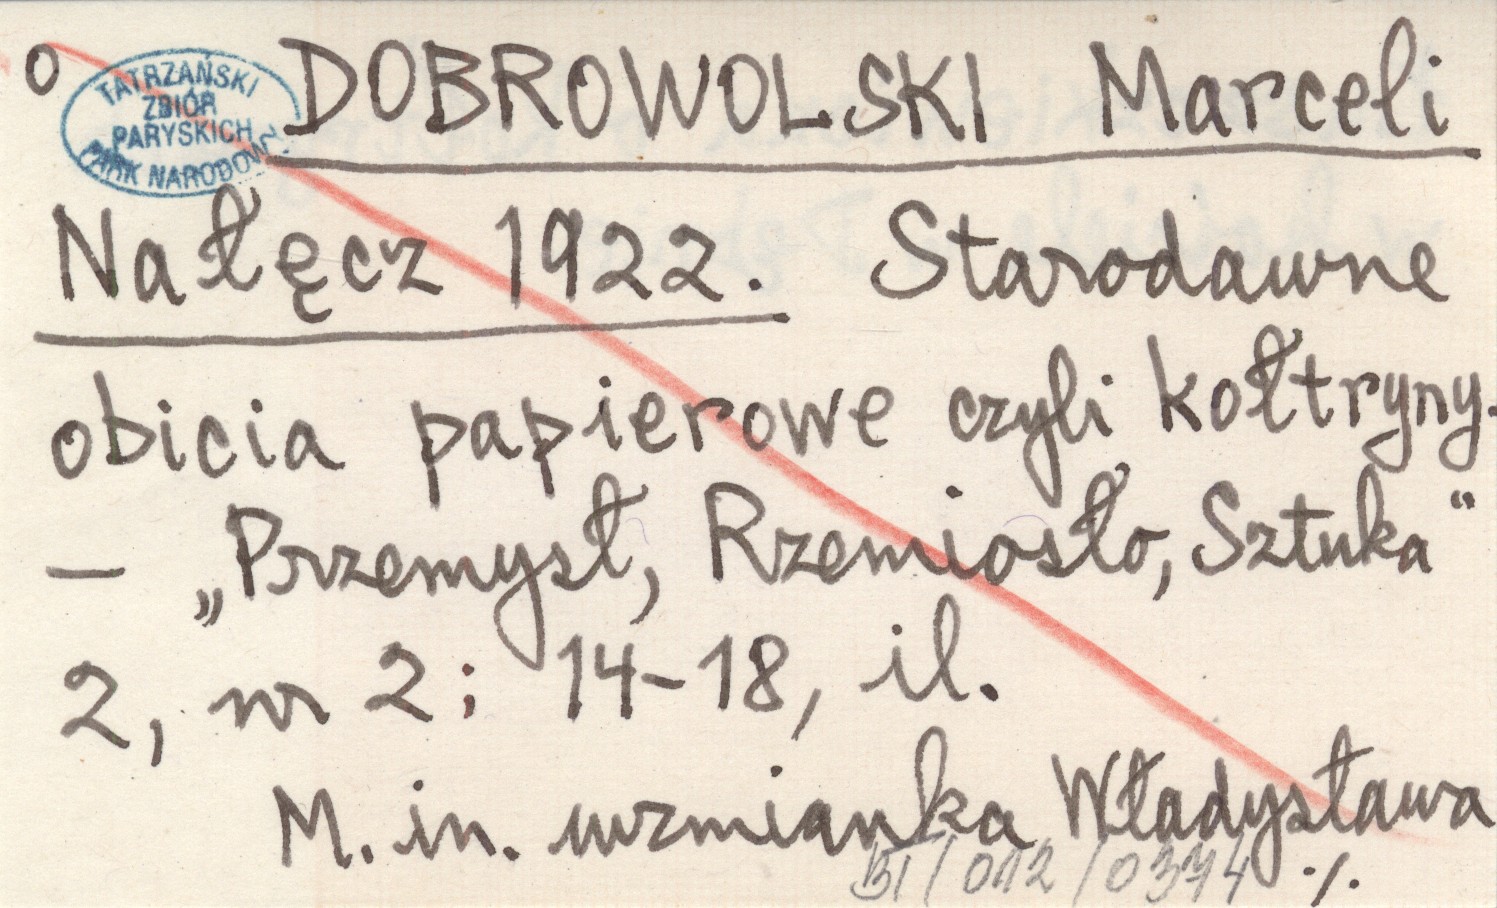 o
TATRZAŃSKI
ZBIÓR
PARYSKICH
PARK NARODOWY
DOBROWOLSKI Marceli
Nałęcz 1922. Starodawne
obicia papierowe czyli kołtryny.
— „Przemysł, Rzemiosło, Sztuka“
2, nr 2; 14-18, il.
M. in. wzmianka Władysława
BI/012/0374 ./.